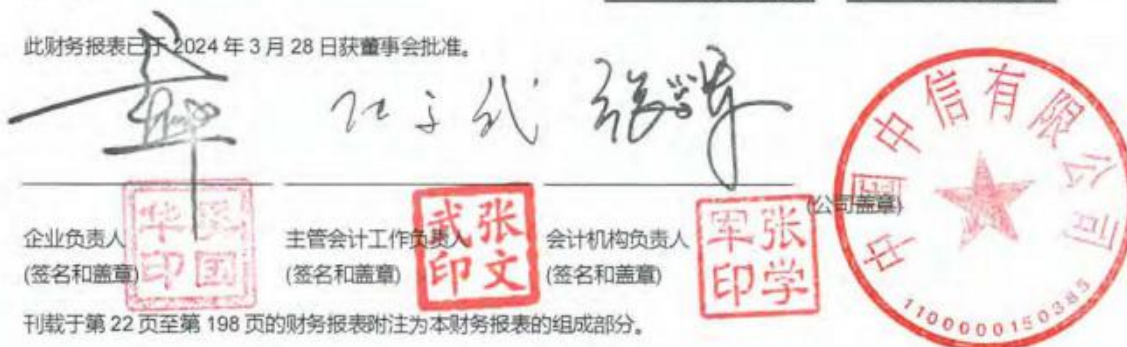 此财务报表已于 2024 年 3 月 28 日获董事会批准。
张文武
企业负责人
(签名和盖章)
主管会计工作负责人
(签名和盖章)
张文
武印
会计机构负责人
(签名和盖章)
张学
军印
(公司盖章)
中国中信有限公司
1100000150385
刊载于第 22 页至第 198 页的财务报表附注为本财务报表的组成部分。